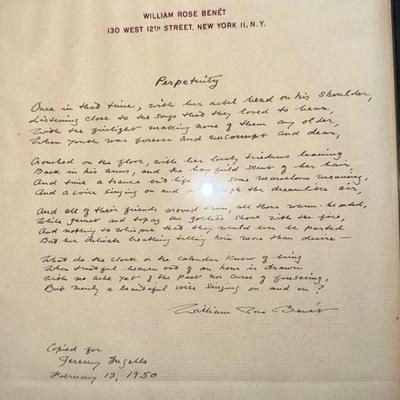 WILLIAM ROSE BENÉT
130 WEST 12TH STREET, NEW YORK 11, N.Y.
Perpetuity
Once in that time, with her rebel head on his shoulder,
Listening close to the songs that they loved to hear,
With the firelight making none of them any older,
When youth was forever and uncorrupt and dear,
Crouched on the floor, with her lovely tiredness leaning
Back in his arms, and the hayfield scent of her hair,
And time a trance and life some marvelous meaning,
And a voice singing on and the dreamlike air,
And all of their friends around them, all those warm-hearted,
While garnet and topaz the goblets shone with the fire,
And nothing to whisper that they would ever be parted
But her delicate breathing telling him more than desire—
What do the clock or the calendar know of being
When truthful heaven out of an hour is drawn
With no ache yet of the past nor curse of foreseeing,
But merely a beautiful voice singing on and on?
William Rose Benét
Copied for
Jeremy Ingalls
February 13, 1950